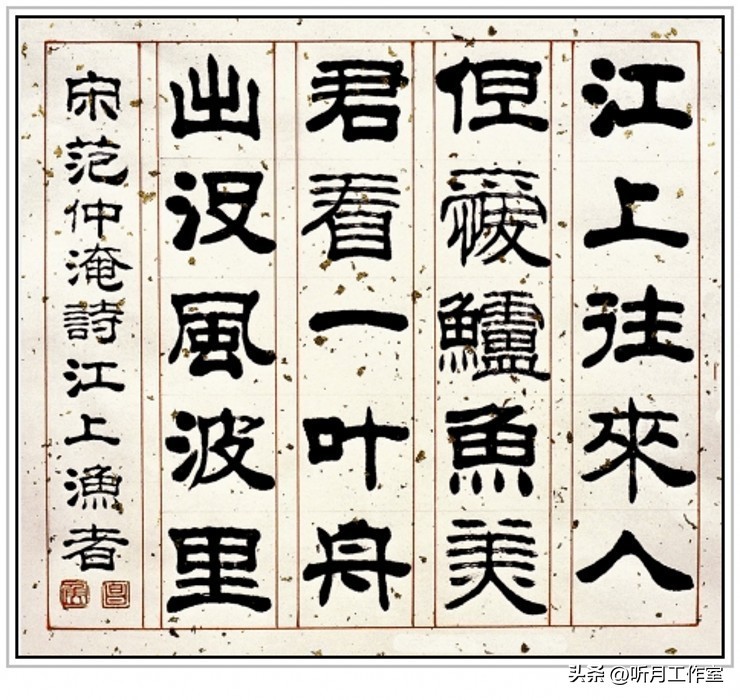 江上往來人
但愛鱸魚美
君看一叶舟
出没風波里
宋范仲淹詩江上漁者
头条 @听月工作室